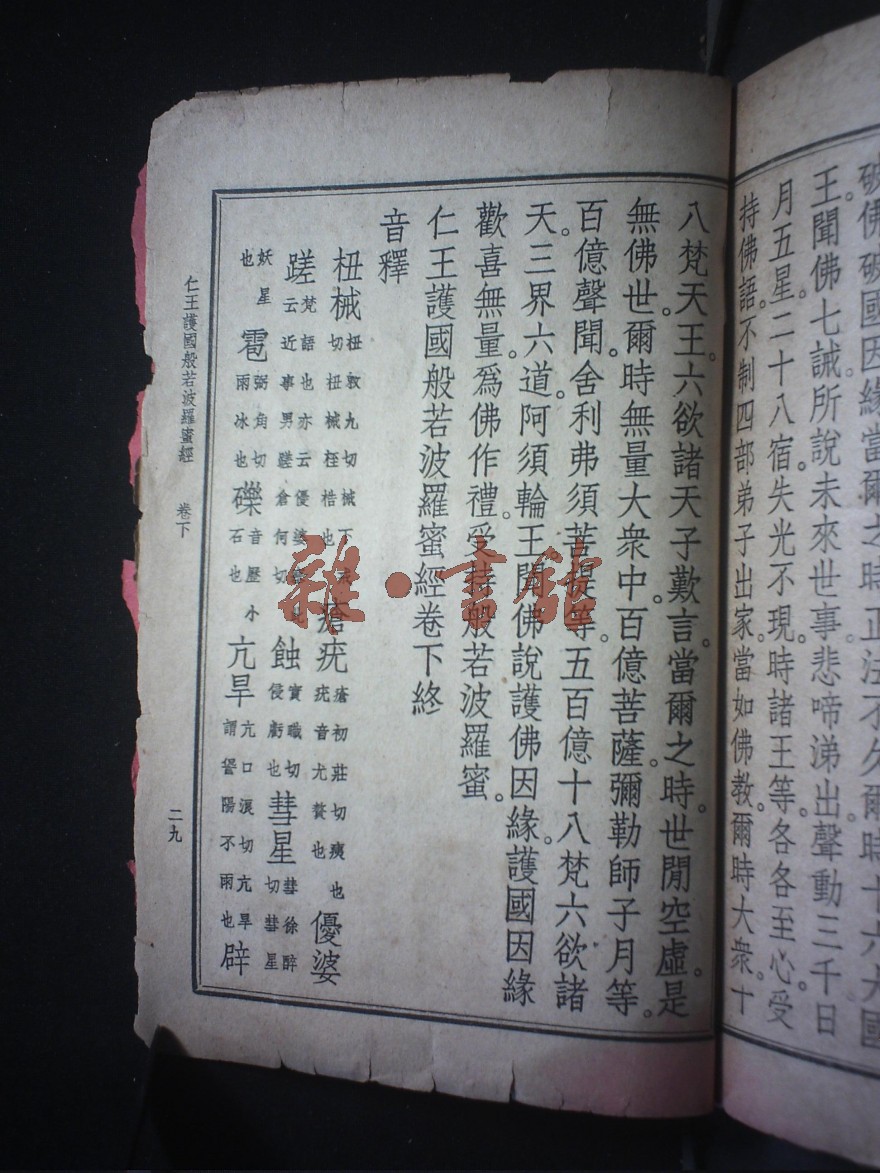 破佛破國因緣當爾之時正法不久爾時十六大國
王聞佛七誡所說未來世事悲啼涕出聲動三千日
月五星二十八宿。失光不現。時諸王等。各各至心受
持佛語。不制四部弟子出家。當如佛教。爾時大衆。十
八梵天王。六欲諸天子歎言。當爾之時。世閒空虛。是
無佛世爾時無量大衆中百億菩薩彌勒師子月等。
百億聲聞。舍利弗須菩提等。五百億十八梵六欲諸
天。三界六道。阿須輪王。聞佛說護佛因緣。護國因緣
歡喜無量。爲佛作禮。受持般若波羅蜜。
仁王護國般若波羅蜜經卷下終
音釋
杻械 杻敕九切械下 切杻械桎梏也 瘡疣 瘡初莊切痍也疣音尤贅也 優婆
蹉 梵語也亦云優婆 云近事男蹉倉何切 蝕 實職切侵虧也 彗星 彗徐醉切彗星
妖星也 雹 弼角切雨冰也 礫 音歷小石也 亢旱 亢口浪切亢旱謂愆陽不雨也 辟
仁王護國般若波羅蜜經 卷下 二九
雜·書館